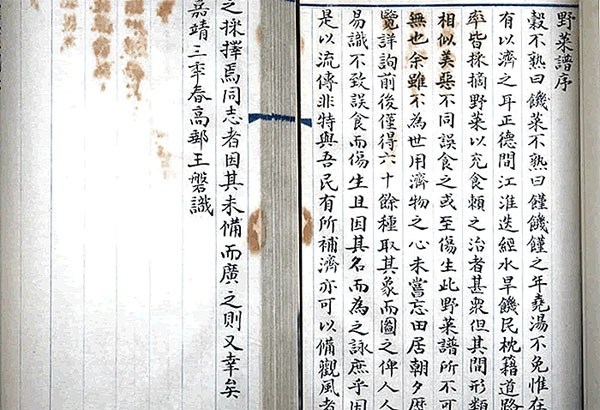 野菜譜序
穀不熟曰饑菜不熟曰饉饑饉之年堯湯不免惟在
有以濟之耳正德間江淮迭經水旱饑民枕籍道路
率皆採摘野菜以充食賴之治者甚衆但其間形類
相似美惡不同誤食之或至傷生此野菜譜所不可
無也余雖不為世用濟物之心未嘗忘田居朝夕歷
覽詳詢前後僅得六十餘種取其象而圖之俾人人
易識不致誤食而傷生且因其名而為之詠庶乎因
是以流傳非特與吾民有所補濟亦可以備觀風者
之採擇焉同志者因其未備而廣之則又幸矣
嘉靖三秊春高郵王磐識